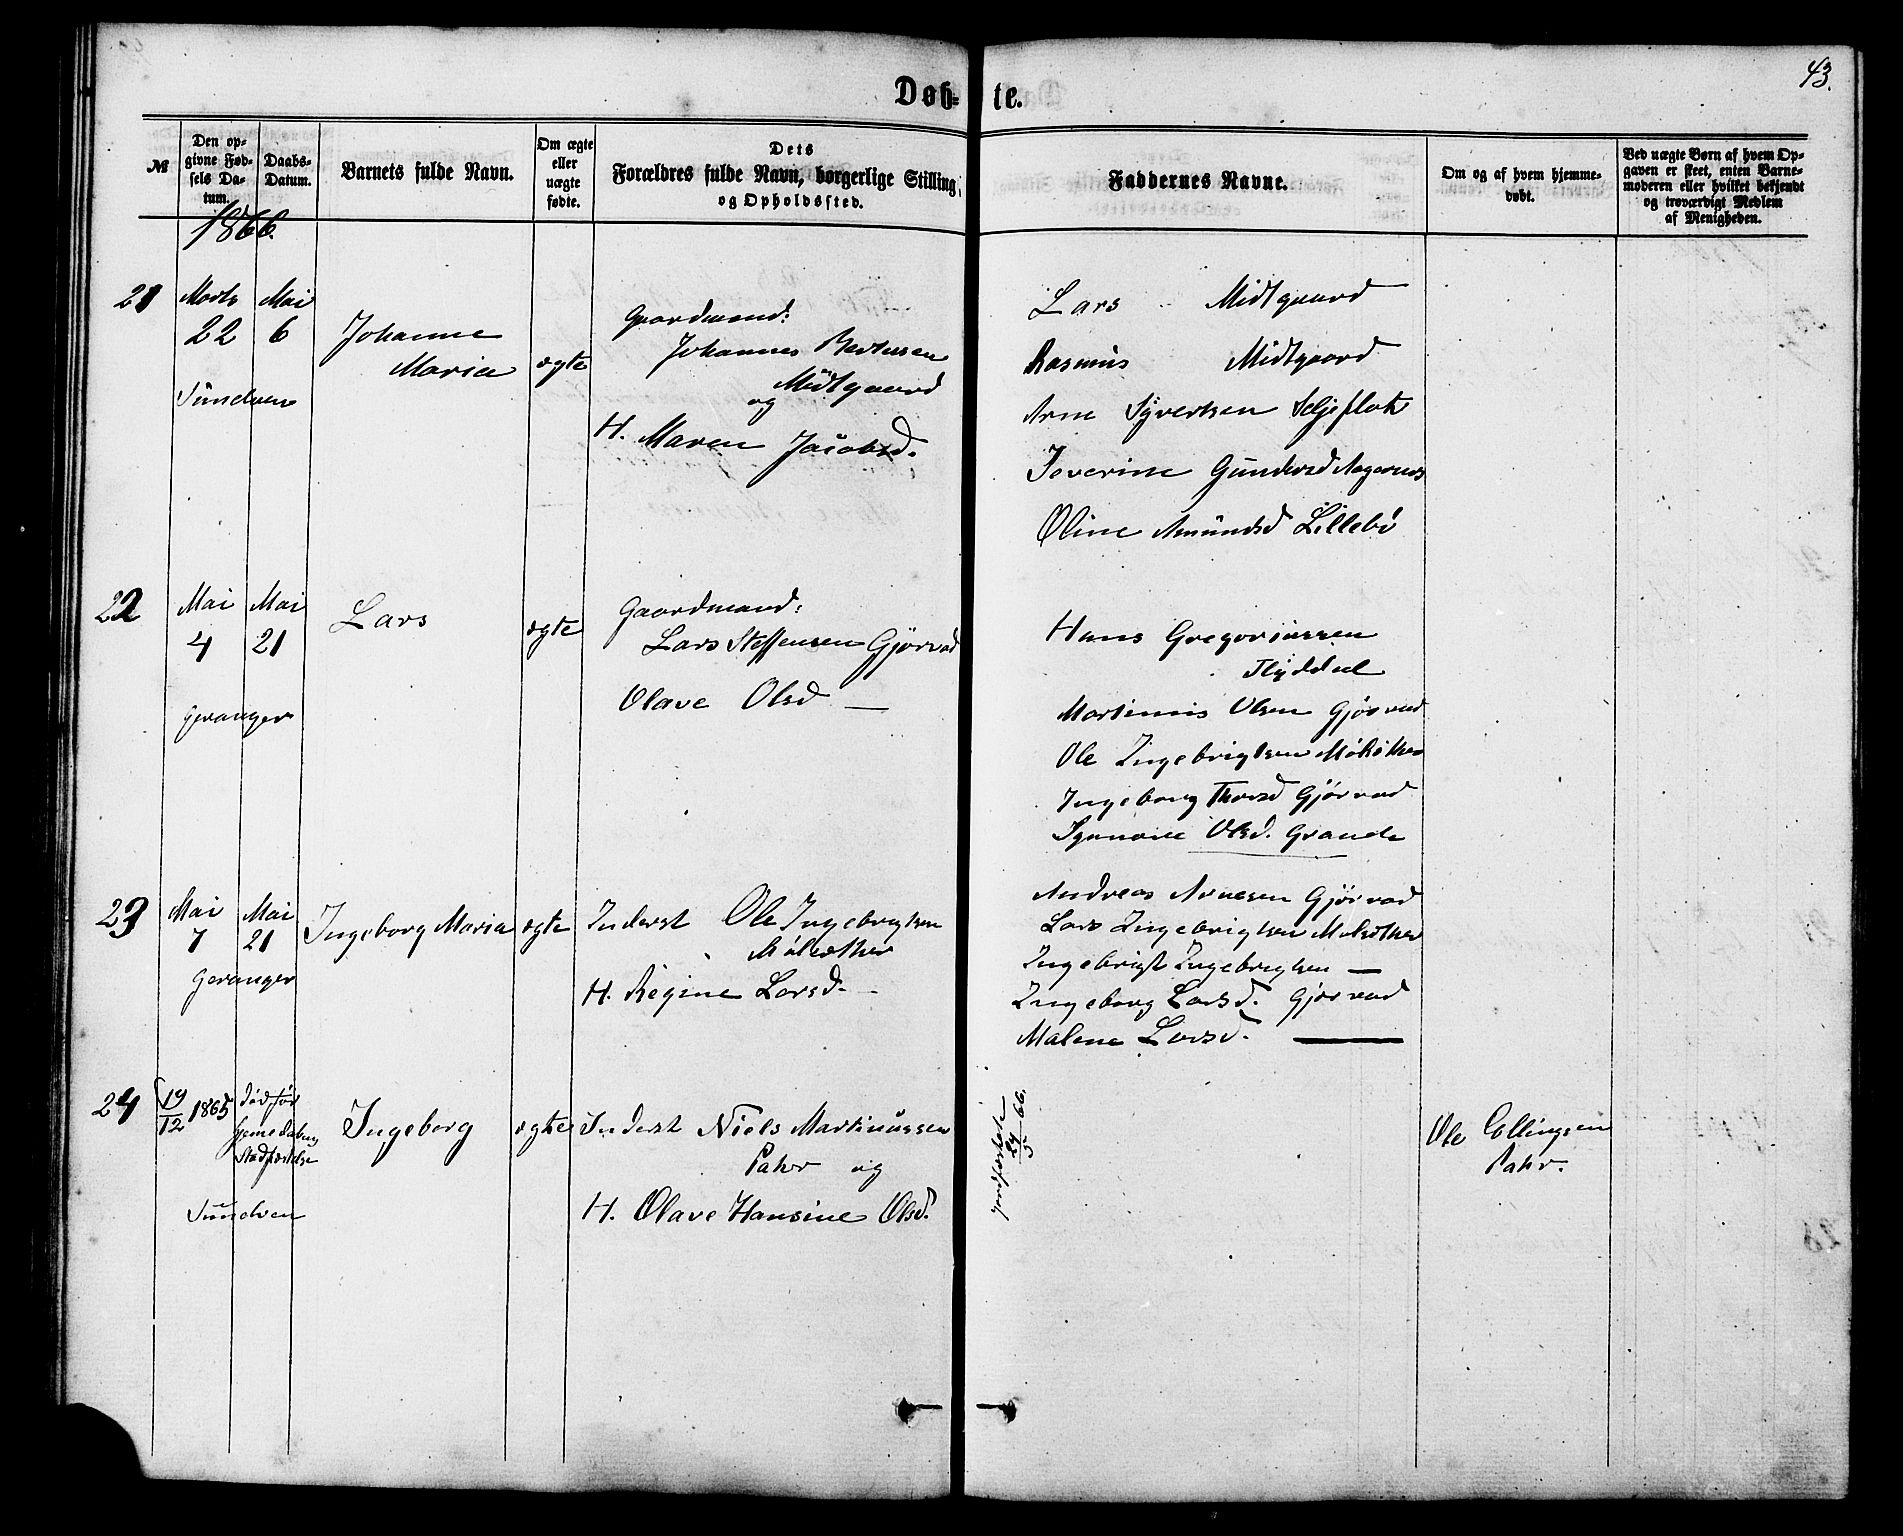 43.
Døb- te.
№
Den op-
givne Fød-
sels Da-
tum.
Daabs-
Datum.
Barnets fulde Navn.
Om ægte
eller
uægte
fødte.
Dets
Forældres fulde Navn, borgerlige Stilling,
og Opholdssted.
Faddernes Navne.
Om og af hvem hjemme-
døbt.
Ved uægte Børn af hvem Op-
gaven er skeet, enten Barne-
moderen eller hvilket bekjendt
og troværdigt Medlem
af Menigheden.
1866.
21
Marts
22
Mai
6
Sündven
Johanne
Maria
ægte
Gaardmand:
Johannes Bertussen
Midtgaard
og
H. Maren Jacobsd.
Lars Midtgaard
Rasmus Midtgaard
Arne Syvertsen Seljeflot
Severine Gundersd
Oline Amündsd Lillebö
22
Mai
4
Mai
21
Geranger
Lars
ægte
Gaardmand:
Lars Steffensen Gjørvad
Olave Olsd —
Hans Gregoriussen
Flyddal
Martinus Olsen Gjørvad
Ole Ingebrigtsen
Ingeborg Thorsd Gjörvad
Synnove Olsd. Grande
23
Mai
7
Mai
21
Geranger
Ingeborg Maria
ægte
Inderst Ole Ingebrigtsen
H. Regine Larsd. —
Andreas Arnesen Gjörvad
Lars Ingebrigtsen
Ingebrigt Ingebrigtsen —
Ingeborg Larsd. Gjørvad
Malene Larsd. —
24
19/12 1865
död før
Hjemmedaabens
Stadfæstelse
Sündven
Ingeborg
ægte
Inderst Niels Martinüssen
Pahr og
H. Olave Hansine Olsd.
Ole Ellingsen
Pahr.